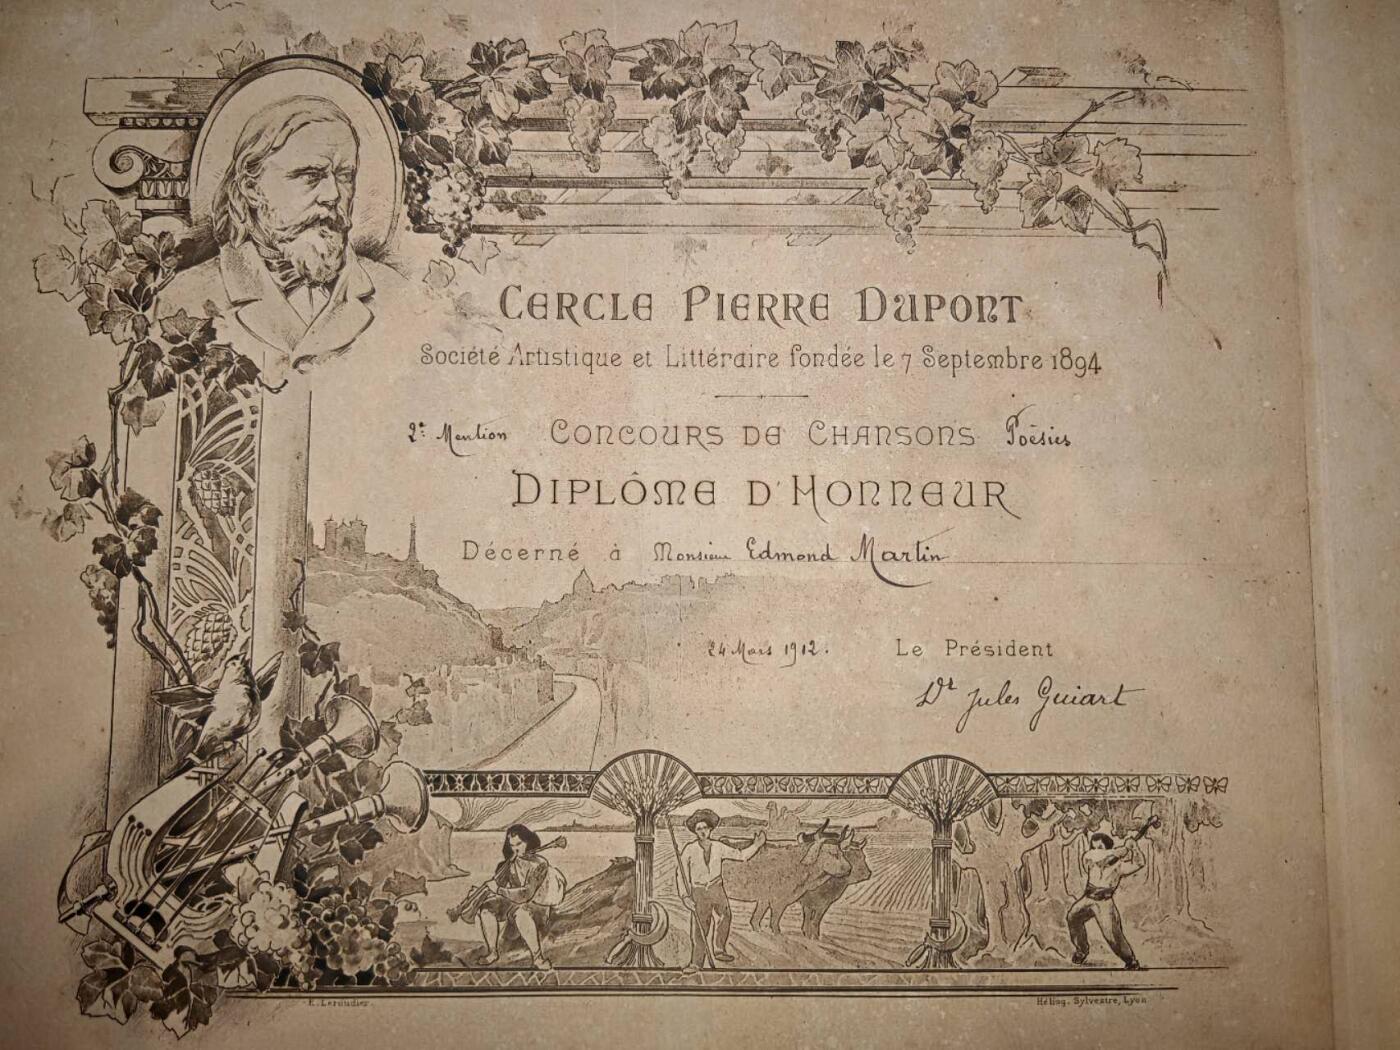 CERCLE PIERRE DUPONT
Société Artistique et Littéraire fondée le 7 Septembre 1894
2e Mention CONCOURS DE CHANSONS Poésies
DIPLÔME D'HONNEUR
Décerné à Monsieur Edmond Martin
24 Mars 1912. Le Président
Dr Jules Guiart
E. Leroudier. Héliog. Sylvestre, Lyon